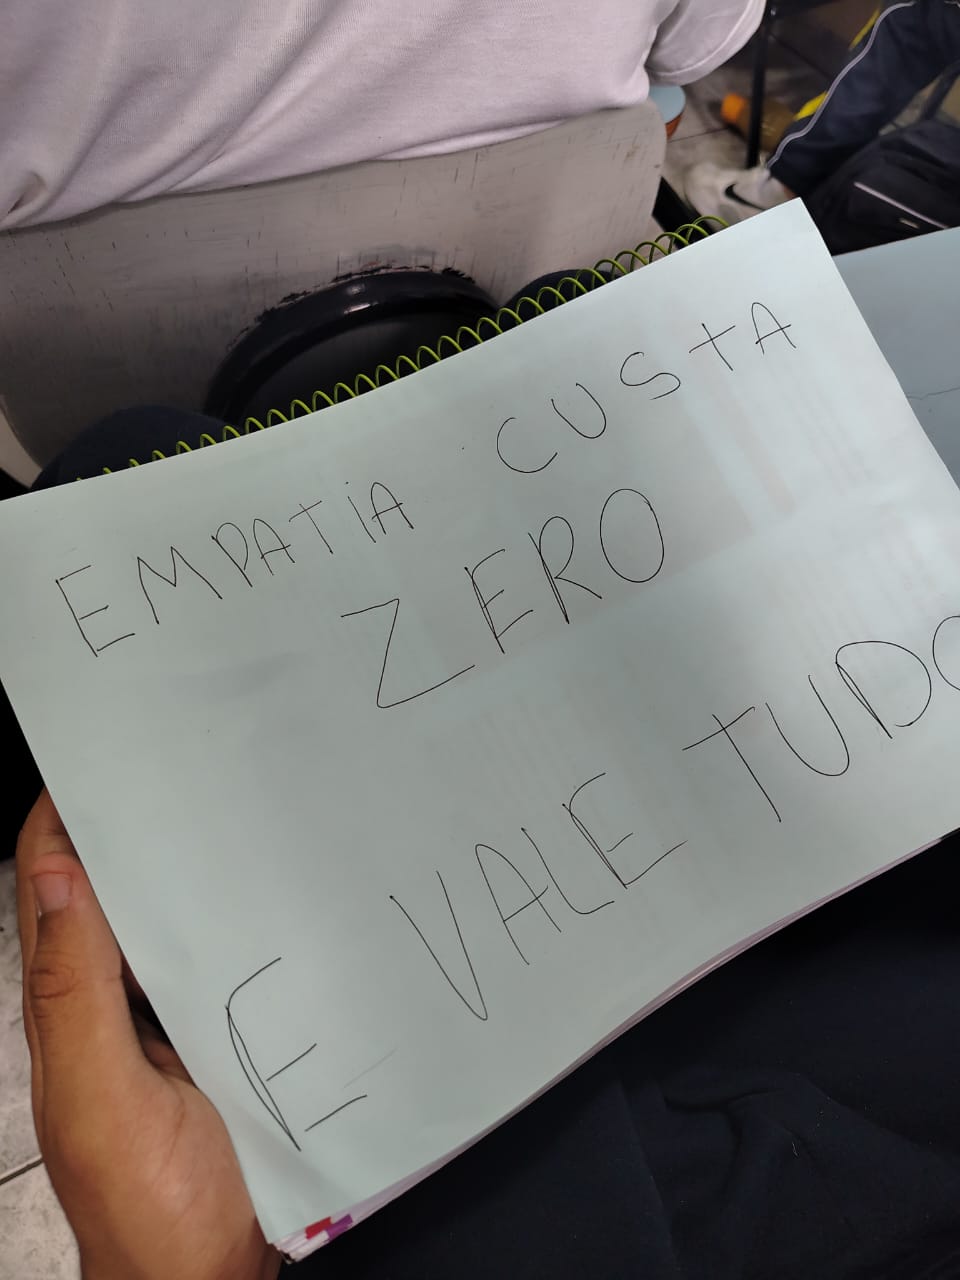 EMPATIA CUSTA
ZERO
E VALE TUDO